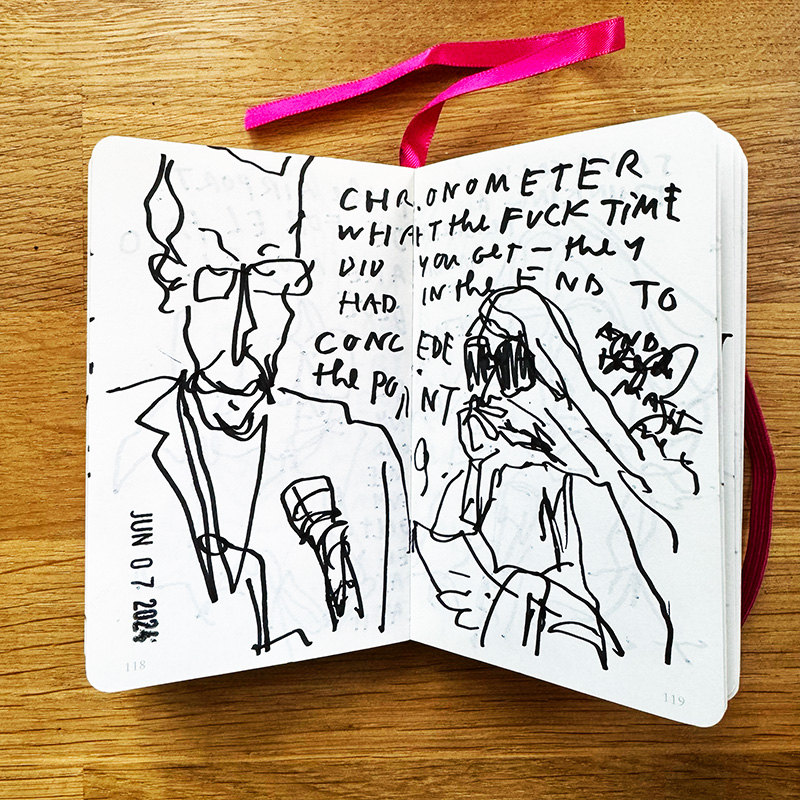 CHRONOMETER
WHAT the FUCK TIME
DID YOU GET — they
HAD IN the END TO
CONCEDE
the POINT
JUN 07 2024
118
119